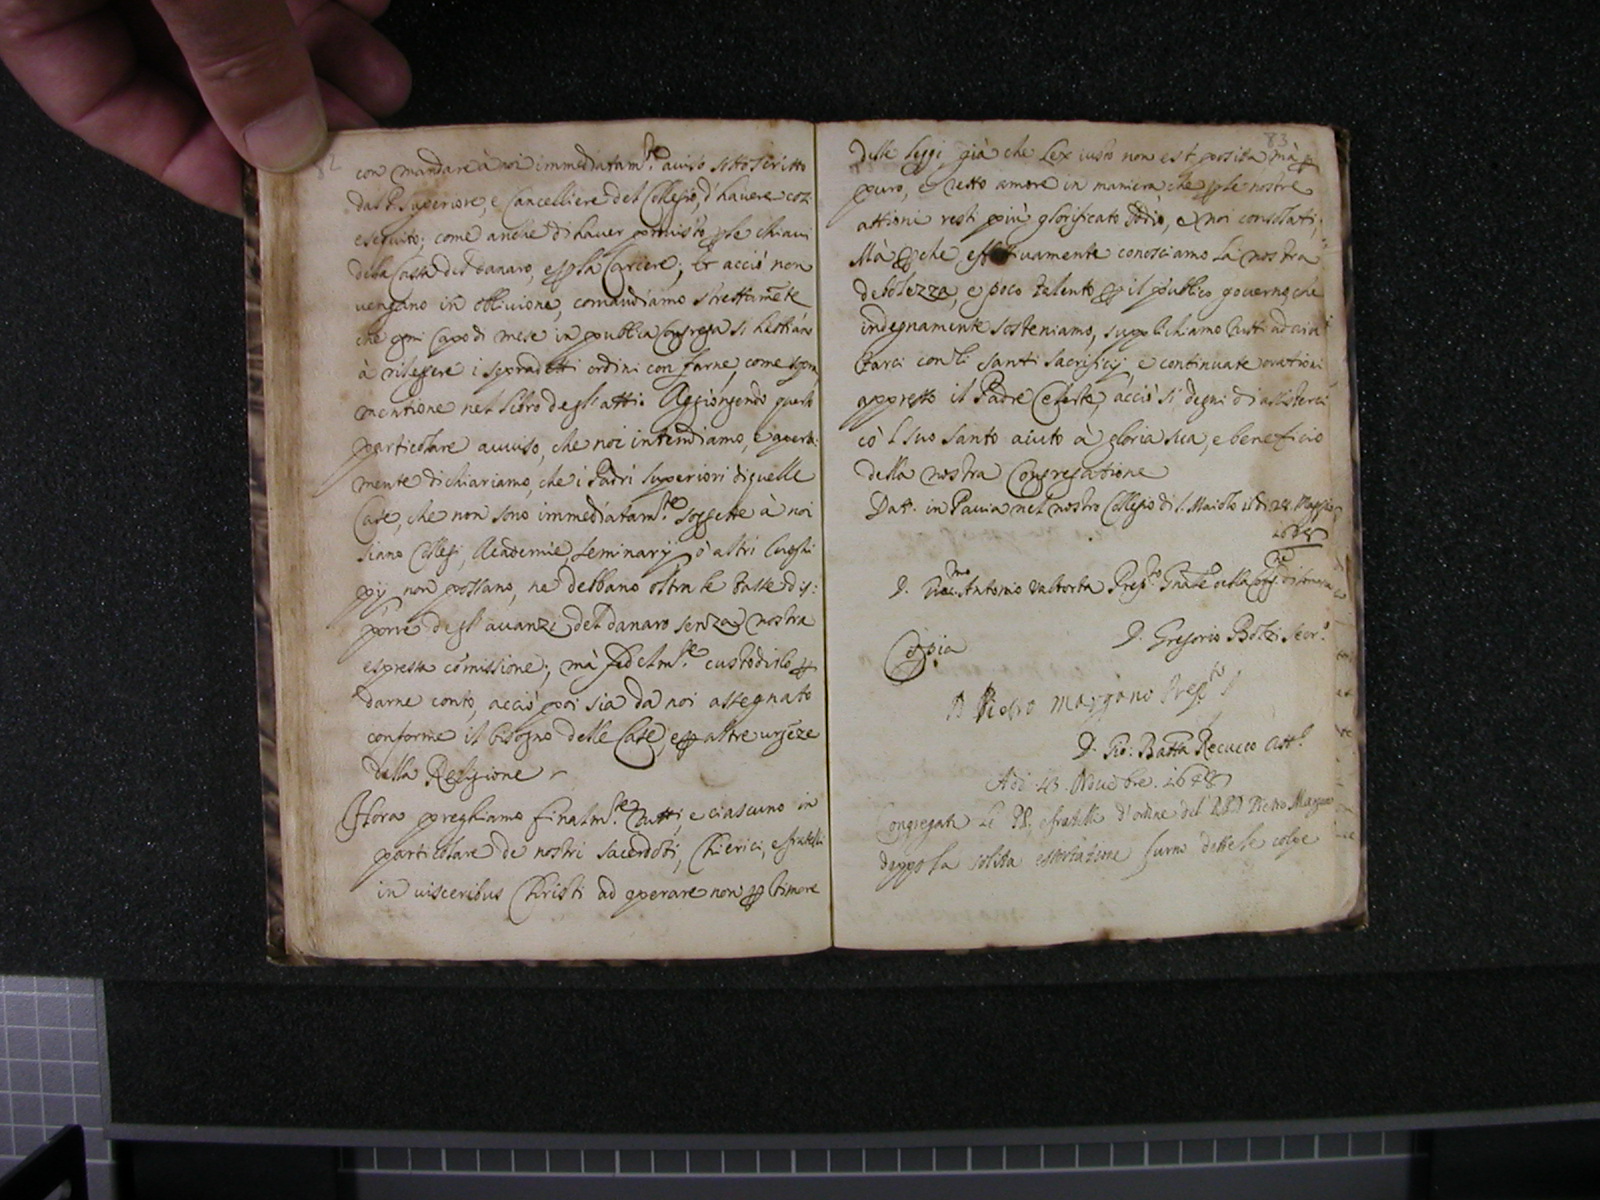 82
con mandare à noi immediatam.te avviso sottoscritto
dal P. Superiore, e Cancelliere del Collegio, d'havere così
esseguito; come anche di haver provisto p le chiavi
della Cassa del danaro, e p la Carcere; Et acciò non
vengano in oblivione, comandiamo strettamēte
che ogni Capo di mese in publica Congrega si
à rileggere i sopradetti ordini con farne, come sopra
mentione nel libro degl'atti. Aggiongendo questo
particolare avviso, che noi intendiamo, e aperta:
mente dichiariamo, che i Padri Superiori di quelle
Case, che non sono immediatam.te soggette à noi
siano Collegi, Academie, Seminarÿ, ò altri luoghi
pÿ, non possano, ne debbano oltra le tasse dis:
porre degl'avanzi del danaro senza nostra
espressa cōmissione; mà fedelm.te custodirlo p
darne conto, acciò poi sia da noi assegnato
conforme il bisogno delle Case, e p altre urgēze
della Religione
Hora preghiamo finalm.te tutti, e ciascuno in
particolare de nostri sacerdoti, Chierici, e fratelli
in visceribus Christi ad operare non p timore
83
delle leggi già che Lex iusto non est posita mà p
puro, e retto amore in maniera che p le nostre
attioni resti più glorificato Iddio, e noi consolati;
Mà p che effettivamente conosciamo la nostra
debolezza, e poco talento p il publico governo, che
indegnamente sosteniamo, supplichiamo tutti ad aiu
tarci con li santi Sacrificij e continuate orationi
appresso il Padre Celeste, acciò si degni di assisterci
cō l suo santo aiuto à gloria sua, e beneficio
della nostra Congregatione
Dat. in Pavia nel nostro Collegio di S. Maiolo li di 28 Maggio
1648
D. Antonio Valtorta Prep.to Gnāle della Cong.ne di Somasca
D. Gregorio Bolzi Secr.o
Copia
D Pietro Margano Prep.to
D. Gio: Batta Recucco Att.o
Adi 13. Nouebre. 1648
Congregati li PP, e fratelli d'ordine del P. D Pietro Margano
doppo la solita essortatione furno dette le colpe